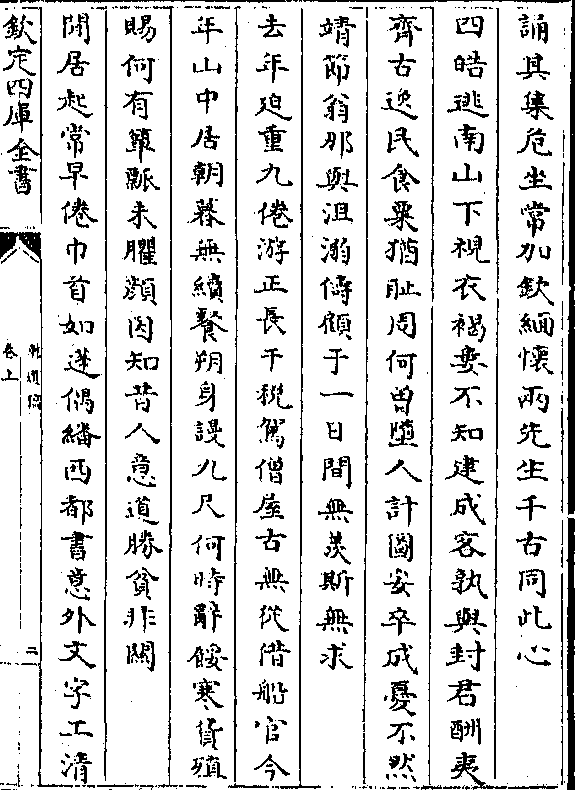 誦其集危坐常加欽緬懷兩先生千古同此心
四皓逃南山下視衣褐婁不知建成客孰與封君酬夷
齊古逸民食粟猶耻周何曾墮人計圖安卒成憂不然
靖節翁那與沮溺儔顧于一日間無羨斯無求
去年迫重九倦游正長干税駕僧屋古無從借船官今
年山中居朝暮無續餐朔身謾九尺何時辭餒寒貨殖
賜何有簞瓢未臞顔因知昔人意道勝貧非關
閒居起常早倦巾首如蓬偶繙西都書意外文字工清
欽定四庫全書
卷上
二